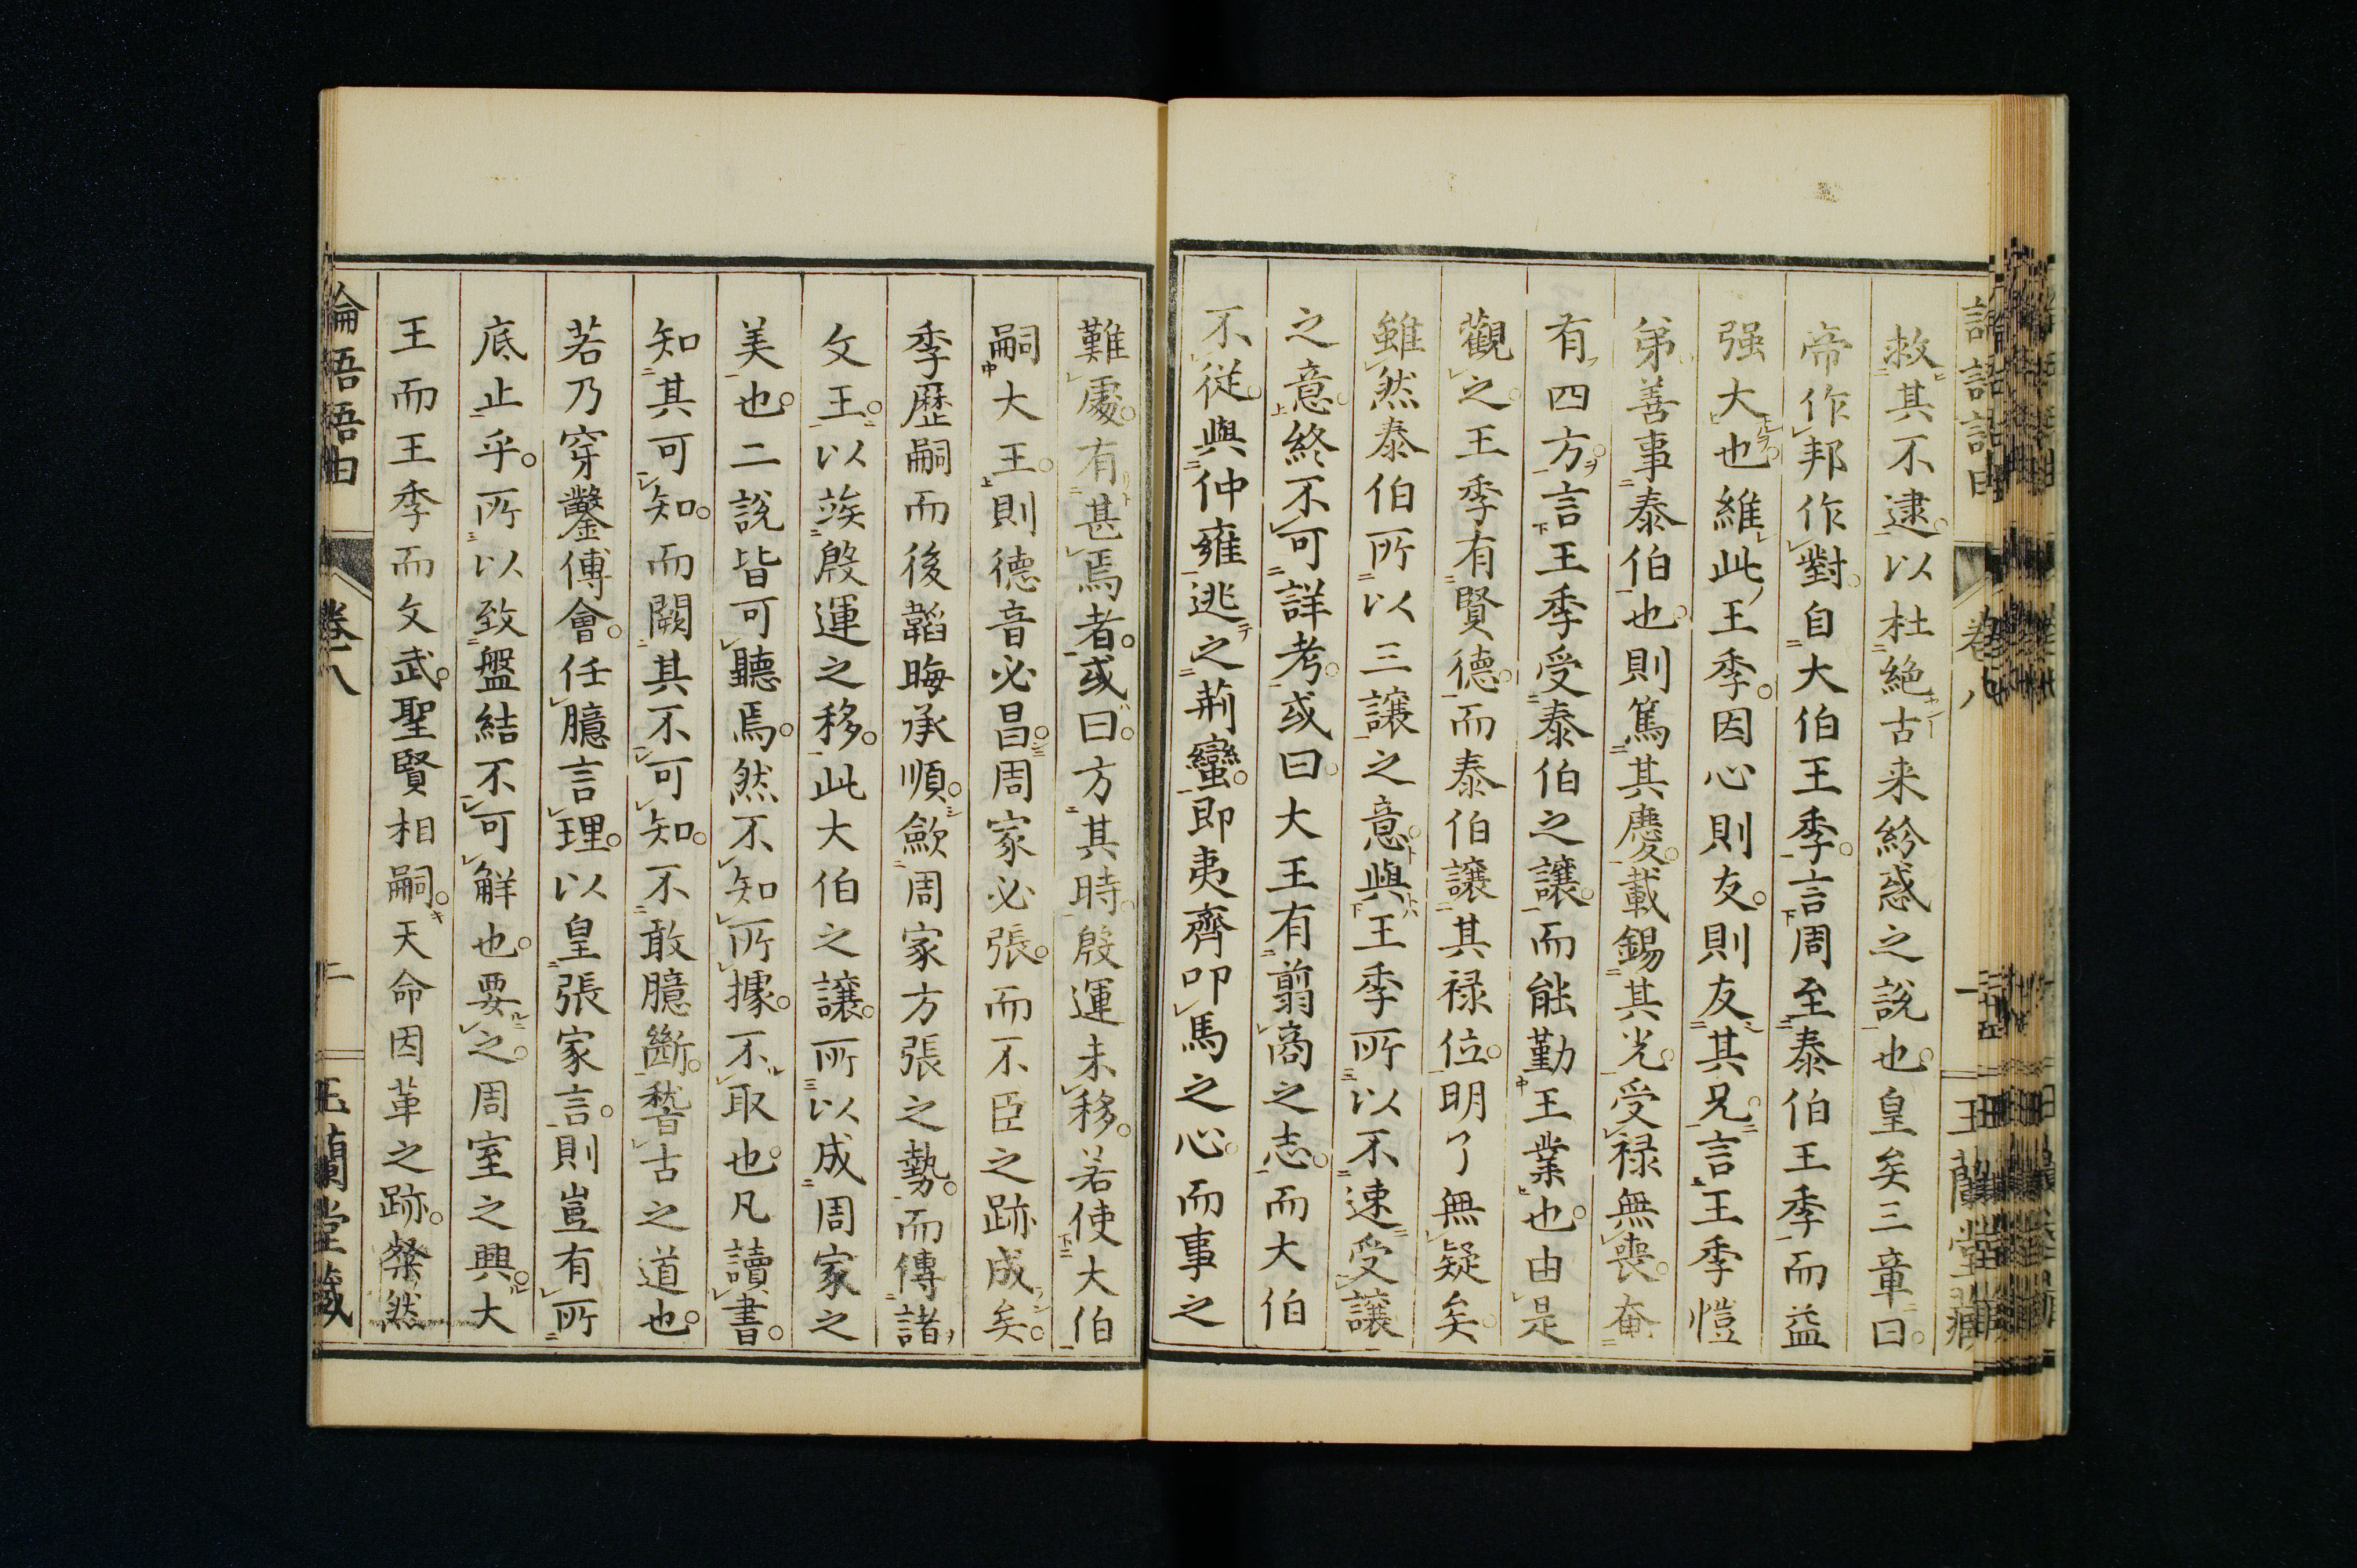 救其不逮以杜絶古来紛惑之説也皇矣三章曰
帝作邦作對自大伯王季言周至泰伯王季而益
强大也維此王季因心則友則友其兄言王季愷
弟善事泰伯也則篤其慶載錫其光受禄無喪奄
有四方言王季受泰伯之譲而能勤王業也由是
觀之王季有賢德而泰伯譲其禄位明了無疑矣
雖然泰伯所以三譲之意與王季所以不速受譲
之意終不可詳考或曰大王有翦商之志而大伯
不従與仲雍逃之荊蠻即夷齊叩馬之心而事之
難處有甚焉者或曰方其時殷運未移若使大伯
嗣大王則德音必昌周家必張而不臣之跡成矣
季歴嗣而後韜晦承順歛周家方張之勢而傳諸
文王以竢殷運之移此大伯之譲所以成周家之
美也二説皆可聽焉然不知所據不取也凡讀書
知其可知而闕其不可知不敢臆斷稽古之道也
若乃穿鑿傅會任臆言理以皇張家言則豈有所
底止乎所以致盤結不可解也要之周室之興大
王而王季而文武聖賢相嗣天命因革之跡粲然
論語語由
卷八
玉蘭堂蔵